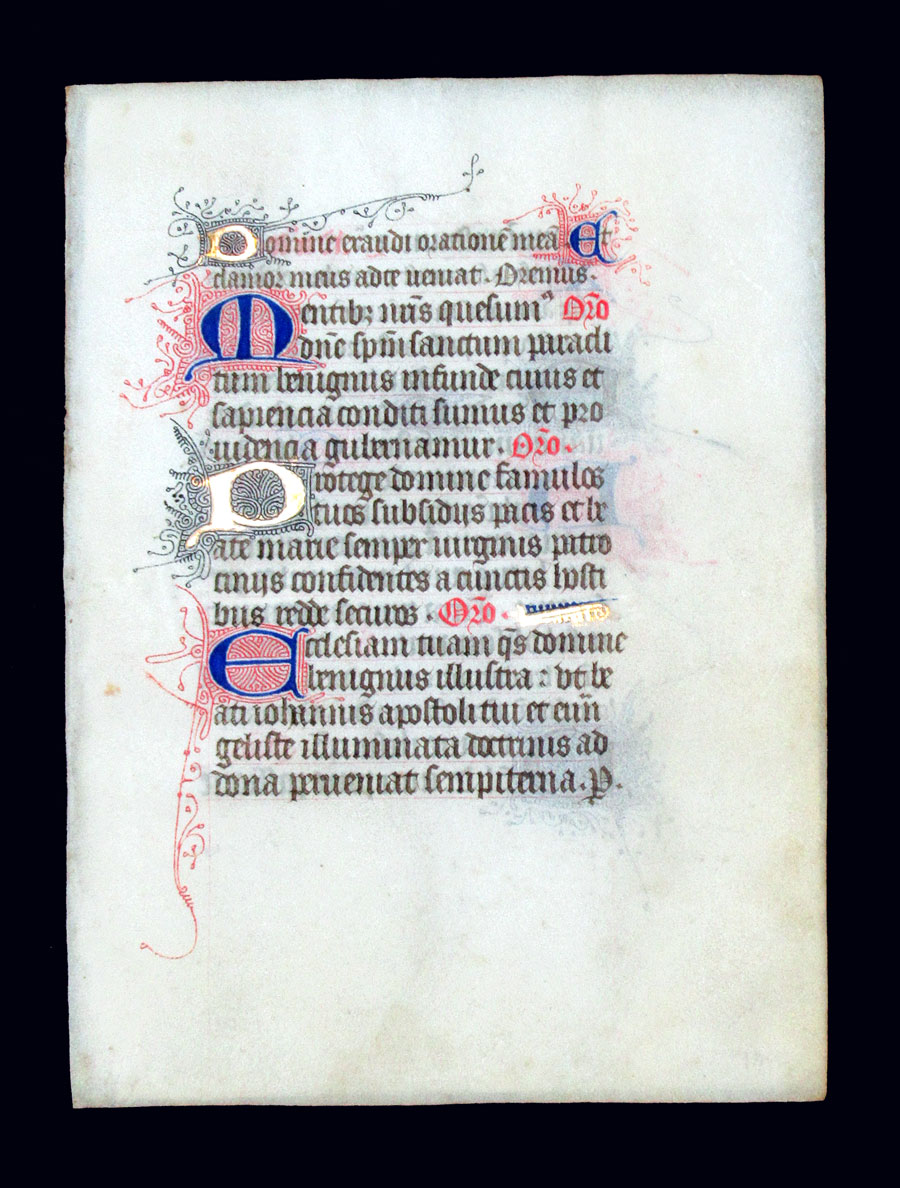 Domine exaudi orationē meā Et
clamor meus ad te ueniat. Oremus.
Mentibꝫ nr̄as quesumꝰ Or̄o
dn̄e sp̄m sanctum paracli
tum benignus infunde cuius et
sapiencia conditi sumus et pro
uidencia gubernamur. Or̄o.
Protege domine famulos
tuos subsidijs pacis et be
ate marie semper uirginis patro
cinijs confidentes a cunctis hosti
bus redde securos. Or̄o.
Ecclesiam tuam q̄s domine
benignus illustra: vt be
ati iohannis apostoli tui et euū
geliste illuminata doctrinis ad
dona perueniat sempiterna. P.